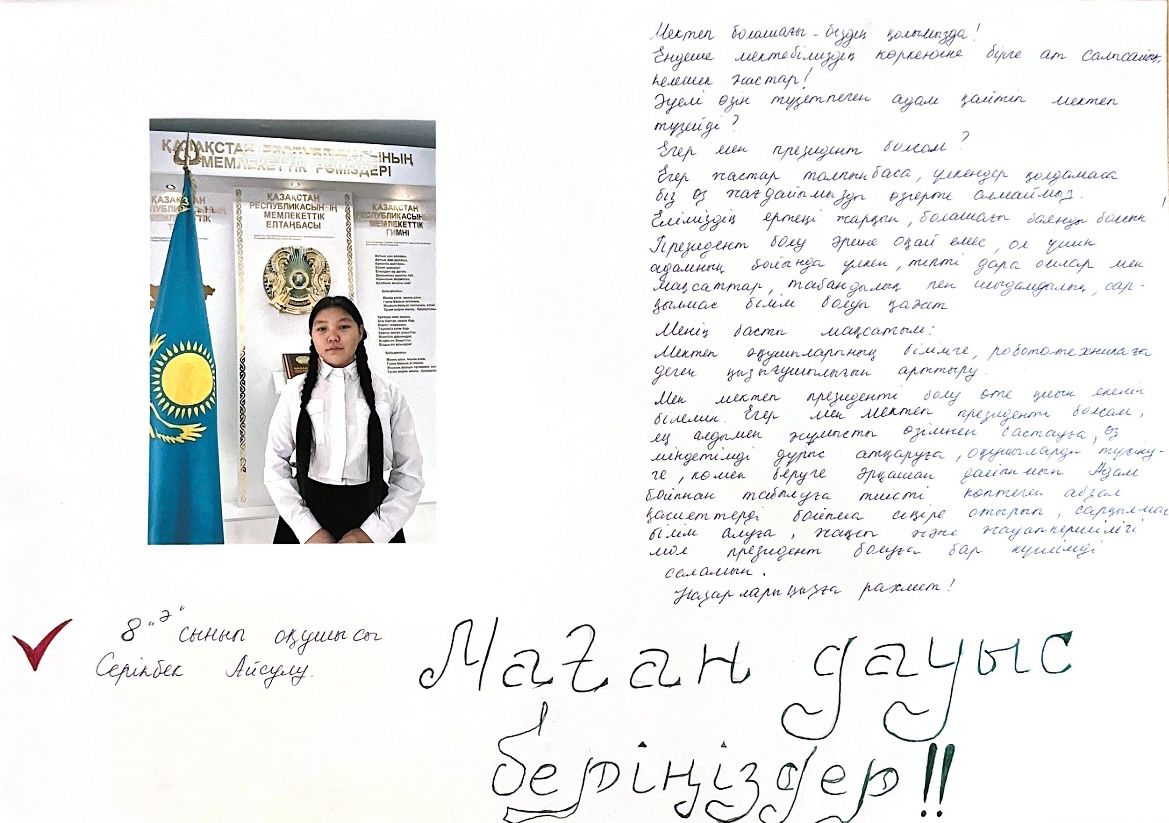 ҚАЗАҚСТАН РЕСПУБЛИКАСЫНЫҢ
МЕМЛЕКЕТТІК РӘМІЗДЕРІ
ҚАЗАҚСТАН
РЕСПУБЛИКАСЫНЫҢ
МЕМЛЕКЕТТІК
ЕЛТАҢБАСЫ
ҚАЗАҚСТАН
РЕСПУБЛИКАСЫНЫҢ
МЕМЛЕКЕТТІК
ГИМНІ
Мектеп болашағы - біздің қолымызда!
Ендеше мектебіміздің көркеюіне бірге ат салысайық,
келешек жастар!
Әуелі өзін түзетпеген адам қайтіп мектеп
түзейді?
Егер мен президент болсам?
Егер жастар талпынбаса, үлкендер қолдамаса
біз өз жағдайымызды өзгерте алмаймыз.
Еліміздің ертеңі жарқын, болашағы баянды болсын!
Президент болу әрине оңай емес, ол үшін
адамның бойында үлкен, тіпті дара ойлар мен
мақсаттар, табандылық пен шыдамдылық, сар-
қылмас білім болуы қажет
Менің басты мақсатым:
Мектеп оқушыларының білімге, робототехникаға
деген қызығушылығын арттыру.
Мен мектеп президенті болу өте қиын екенін
білемін. Егер мен мектеп президенті болсам,
ең алдымен жұмысты өзімнен бастауға, өз
міндетімді дұрыс атқаруға, оқушыларды түсіну-
ге, көмек беруге әрқашан дайынмын Адам
бойынан табылуға тиісті көптеген абзал
қасиеттерді бойыма сіңіре отырып, сарқылмас
білім алуға, жақсы және жауапкершілігі
мол президент болуға бар күшімді
саламын.
Назарларыңызға рахмет!
8 "Ә" сынып оқушысы
Серікбек Айсұлу.
Маған дауыс
беріңіздер!!